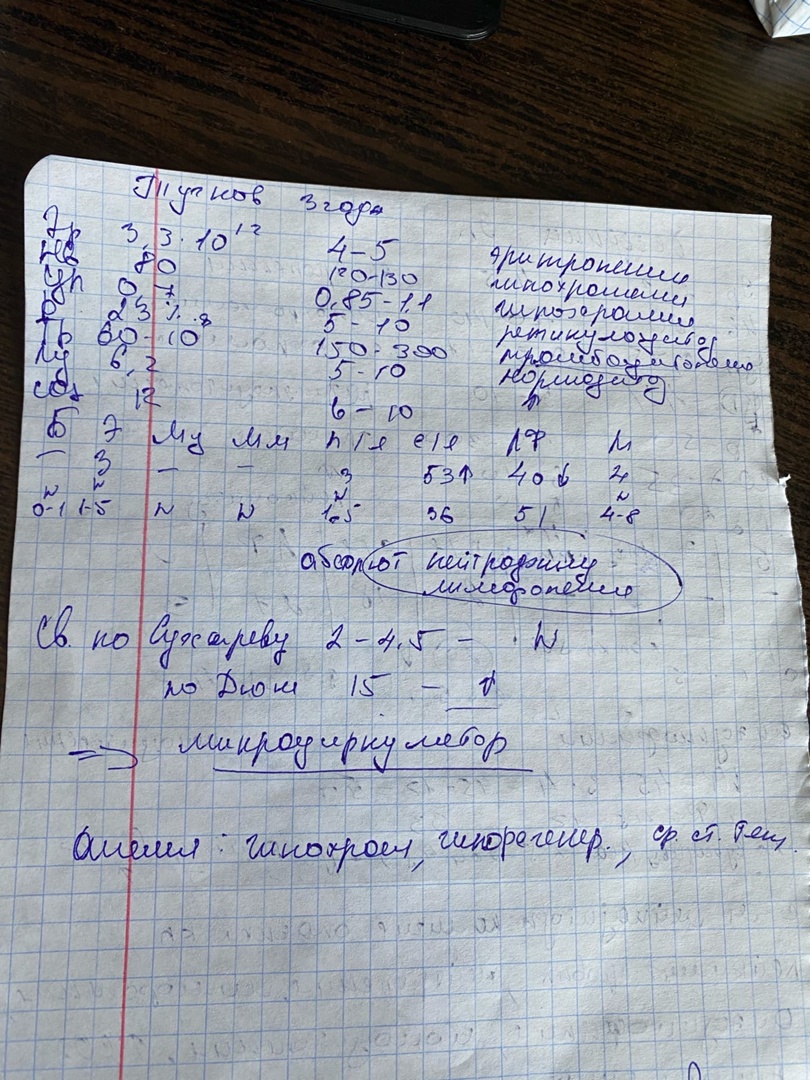 Тучков 3 года
Эр 3,3·10¹² 4-5 эритропения
Нв 80 120-130 гипохромия
ЦП 0,7 0,85-1,1 гипохромия
23 ‰ 5-10 ретикулоцитоз
Тр 60·10⁹ 150-300 тромбоцитопения
6,2 5-10 нормоцитоз
СОЭ 12 6-10 ↑
Б Э Мц Мм п/я с/я лф М
- 3 - - 3 53↑ 40↓ 4
N N N N
0-1 1-5 N N 1-5 36 51 4-8
абсолют нейтрофилия
лимфопения
Св. по Сухареву 2-4,5 - N
по Дюке 15 - ↑
=> микроциркулятор
Анемия: гипохром, гипорегенер., ср. ст. тяж.